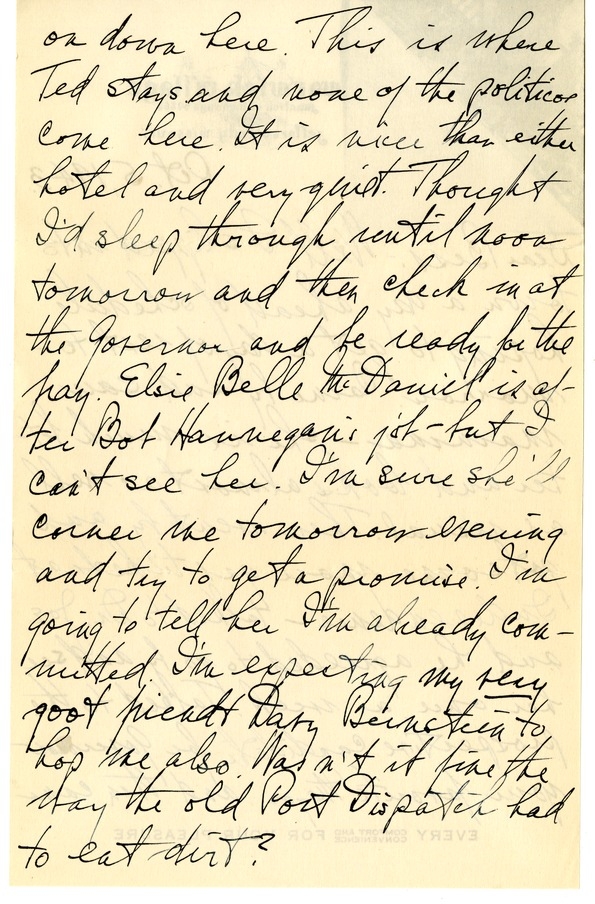 on down here. This is where
Ted stays and none of the politicos
come here. It is nicer than either
hotel and very quiet. Thought
I'd sleep through until noon
tomorrow and then check in at
the Governor and be ready for the
fray. Elsie Belle McDaniel is af-
ter Bob Hannegan's job - but I
can't see her. I'm sure she'll
corner me tomorrow evening
and try to get a promise. I'm
going to tell her I'm already com-
mitted. I'm expecting my very
goot friendt Davy Bernstein to
hop me also. Wasn't it fine the
way the old Post Dispatch had
to eat dirt?
EVERY COMFORT AND CONVENIENCE FOR YOUR PLEASURE